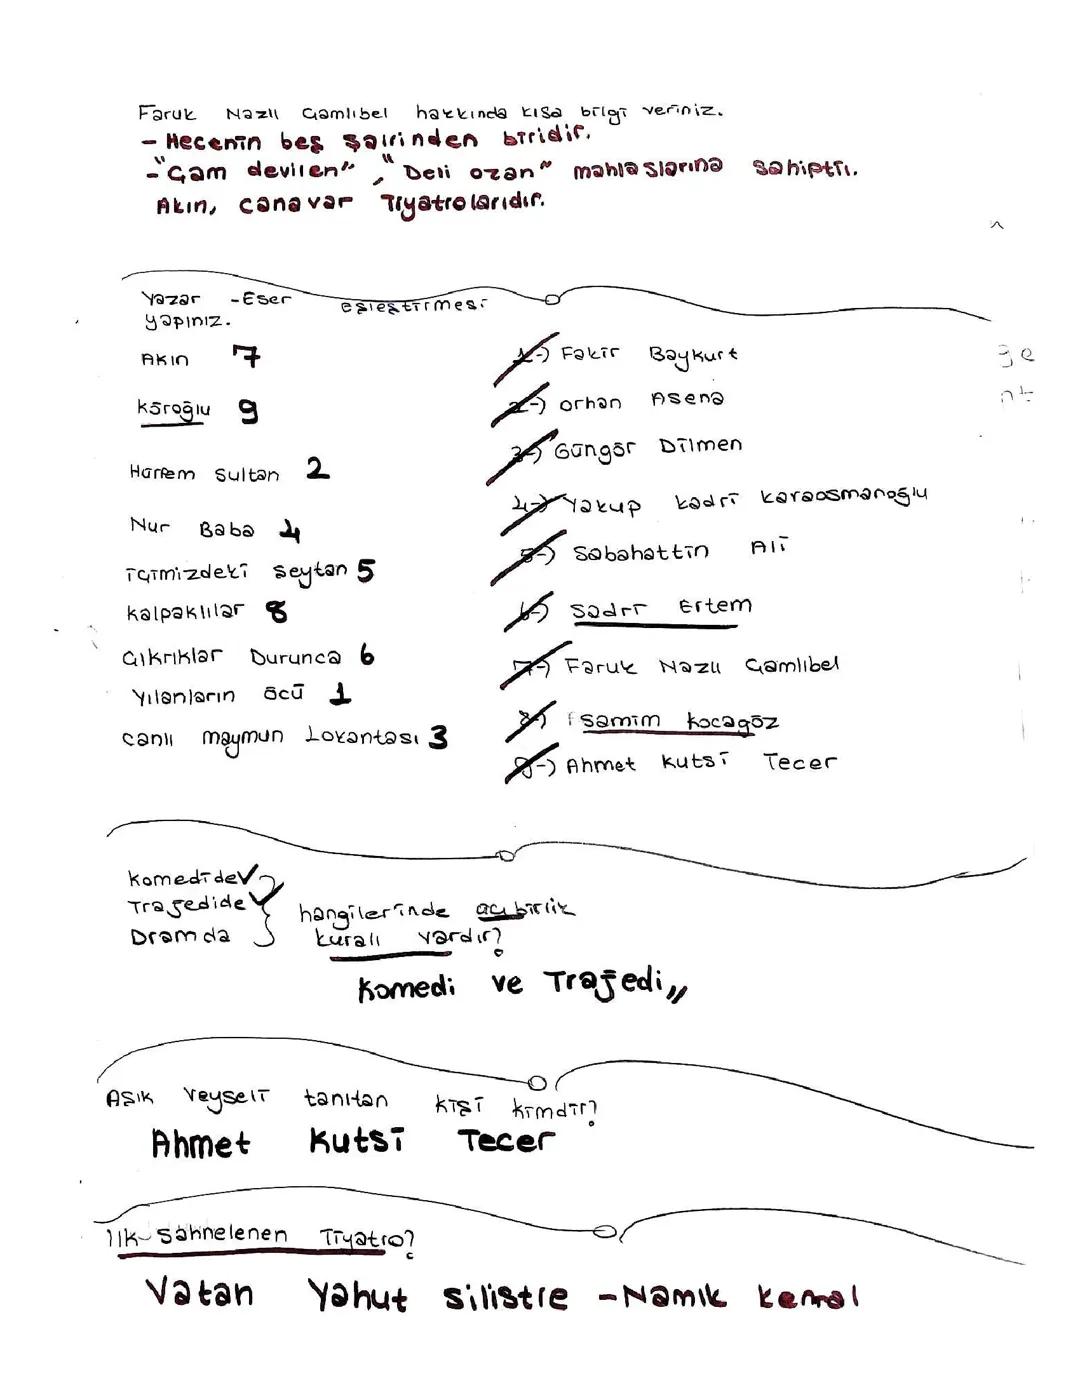 Faruk Nazlı Çamlıbel hakkında kısa bilgi veriniz.
- Hecenin beş şairinden biridir.
- "Çam deviren", "Deli ozan" mahlaslarına sahiptir.
Akın, canavar Tiyatrolarıdır.
Yazar -Eser eşleştirmesi
yapınız.
Akın 7
Köroğlu 9
Hürrem Sultan 2
Nur Baba 4
içimizdeki şeytan 5
kalpaklılar 8
Çıkrıklar Durunca 6
Yılanların öcü 1
canlı maymun Lokantası 3
1-) Fakir Baykurt
2-) orhan Asena
3-) Güngör Dilmen
4-) Yakup kadri karaosmanoğlu
5-) Sabahattin Ali
6-) Sadri Ertem
7-) Faruk Nazlı Çamlıbel
8-) samim kocagöz
9-) Ahmet kutsi Tecer
Komedide
Trajedide
Dramda
hangilerinde üç birlik
kuralı vardır?
Komedi ve Trajedi,,
Aşık Veyseli tanıtan kişi kimdir?
Ahmet Kutsi Tecer
ilk sahnelenen Tiyatro?
Vatan Yahut silistre - Namık kemal